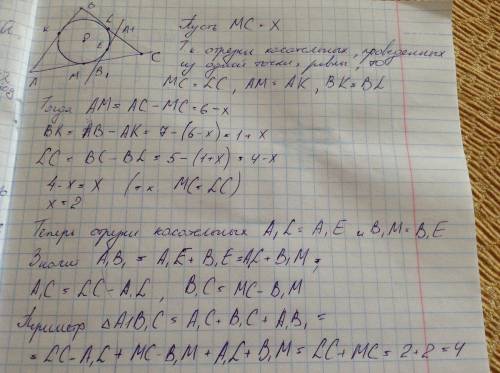 B
K
L
A₁
P
E
C
A
M
B₁
Пусть MC = x
Т.к отрезки касательных, проведенных
из одной точки, равны, то
MC = LC, AM = AK, BK = BL
Тогда AM = AC - MC = 6 - x
BK = AB - AK = 7 - (6 - x) = 1 + x
LC = BC - BL = 5 - (1+x) = 4 - x
4 - x = x (т.к MC = LC)
x = 2
Теперь отрезки касательных A₁L = A₁E и B₁M = B₁E
Значит A₁B₁ = A₁E + B₁E = A₁L + B₁M;
A₁C = LC - A₁L, B₁C = MC - B₁M
Периметр △A₁B₁C = A₁C + B₁C + A₁B₁ =
= LC - A₁L + MC - B₁M + A₁L + B₁M = LC + MC = 2 + 2 = 4